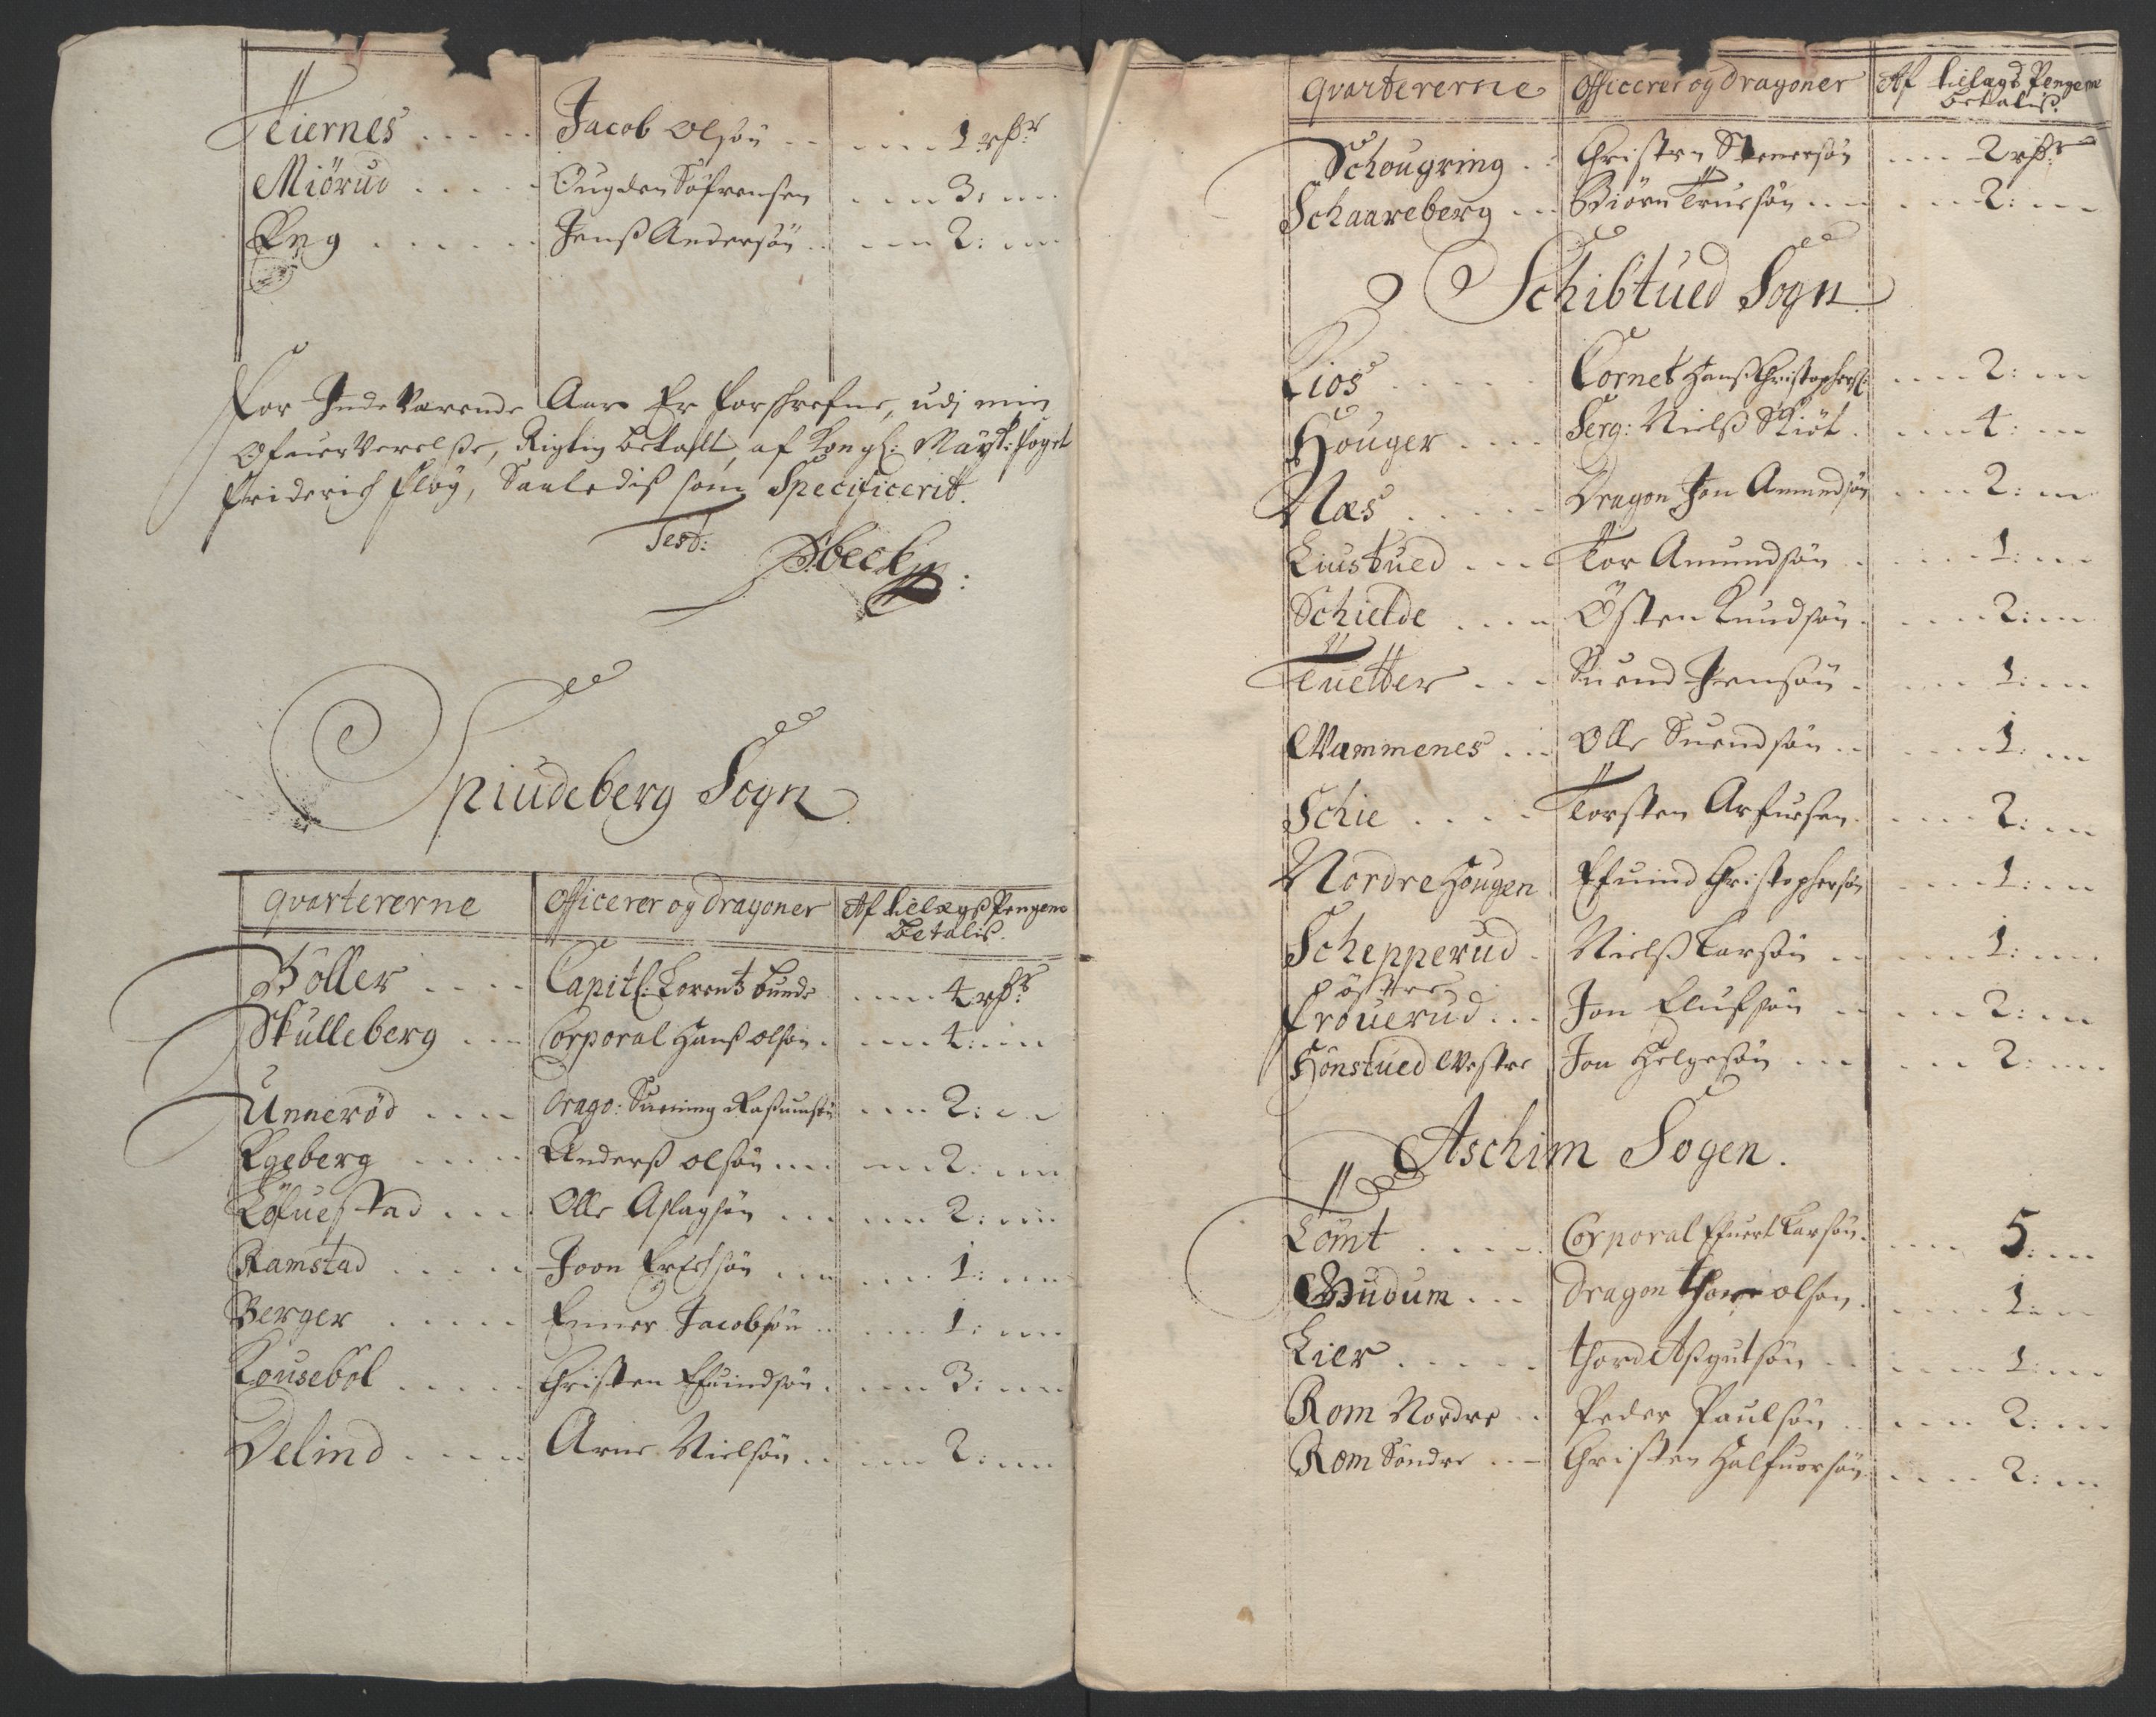 Teiernes . . . . . Jacob Olsøn . . . . . 1 rdr
Miörud . . . . . Ougden Söfrensen . . . 3: . . .
Eng . . . . . . Jenß Andersøn . . . . 2: . . .
For Indeværende Aar Er forschrefne, udj min
Ofuerverelße, Rigtig betalt, af Kongl: Mayst: foget
Friderich Fløg, Saaledis som Specificerit.
Test:
Spiudeberg Sogn
qvartererne Officerer og dragoner Af tilægß Pengene
betalis.
Böller . . . . Capitl: Lorentz Bunde . . . . 4 rdr
Skulleberg . . . Corporal Hanß olsøn . . . . 4: . . .
Unnerød . . . . Drago: Suening Raßumsøn . . . 2: . . .
Egeberg . . . . . Anderß olsøn . . . . . . 2: . . .
Löfuestad . . . Olle Aslagsøn . . . . . . 2: . . .
Ramstad . . . . . Joon Erichsøn . . . . . . 1: . . .
Berger . . . . . Einer Jacobsøn . . . . . 1: . . .
Kousebøl . . . . . Christen Efuindsøn . . . . 3: . . .
Delind . . . . Arne Nielsøn . . . . . 2: . . .
qvartererne Officerer og dragoner Af tilægß Pengene
betalis.
Schougring . . Christen Stenersøn . . . . 2 rdr
Schaareberg . . . Biörn Truesøn . . . . . . 2: . . .
Schibtued Sogn
Lios . . . . . Cornet Hanß Christophers: . . . . 2: . . .
Houger . . . . Serg: Nielß Skiöt . . . . 4: . . .
Næs . . . . . Dragon Jon Amundsøn . . . . 2: . . .
Liustued . . . Tor Amundsøn . . . . . 1: . . .
Schielde . . . . Østen Knudsøn . . . . . 2: . . .
Tuetter . . . Suend Jensøn . . . . . 1: . . .
Wammenes . . . Olle Suendsøn . . . . . . 1: . . .
Schie . . . . Torsten Arfuesen . . . . . 2: . . .
Nordre Hougen Efuind Christophersøn . . . . 1: . . .
Schepperud . Nielß Larsøn . . . . . . 1: . . .
Östre
Frouerud . . . Jon Elufsøn . . . . . 2: . . .
Hönstued Westre Jon Helgesøn . . . . . . 2: . . .
Aschim Sogen.
Lömt . . . . . Corporal Efuert Larsøn . . . . 5: . . .
Gudum . . . Dragon Thore olsøn . . . . 1: . . .
Lier . . . . . Thord Aßgutsøn . . . . . . 1: . . .
Rom Nordre . . Peder Paulsøn . . . . . 2: . . .
Rom Söndre . . . Christen Halfuorsøn . . . . 2: . . .